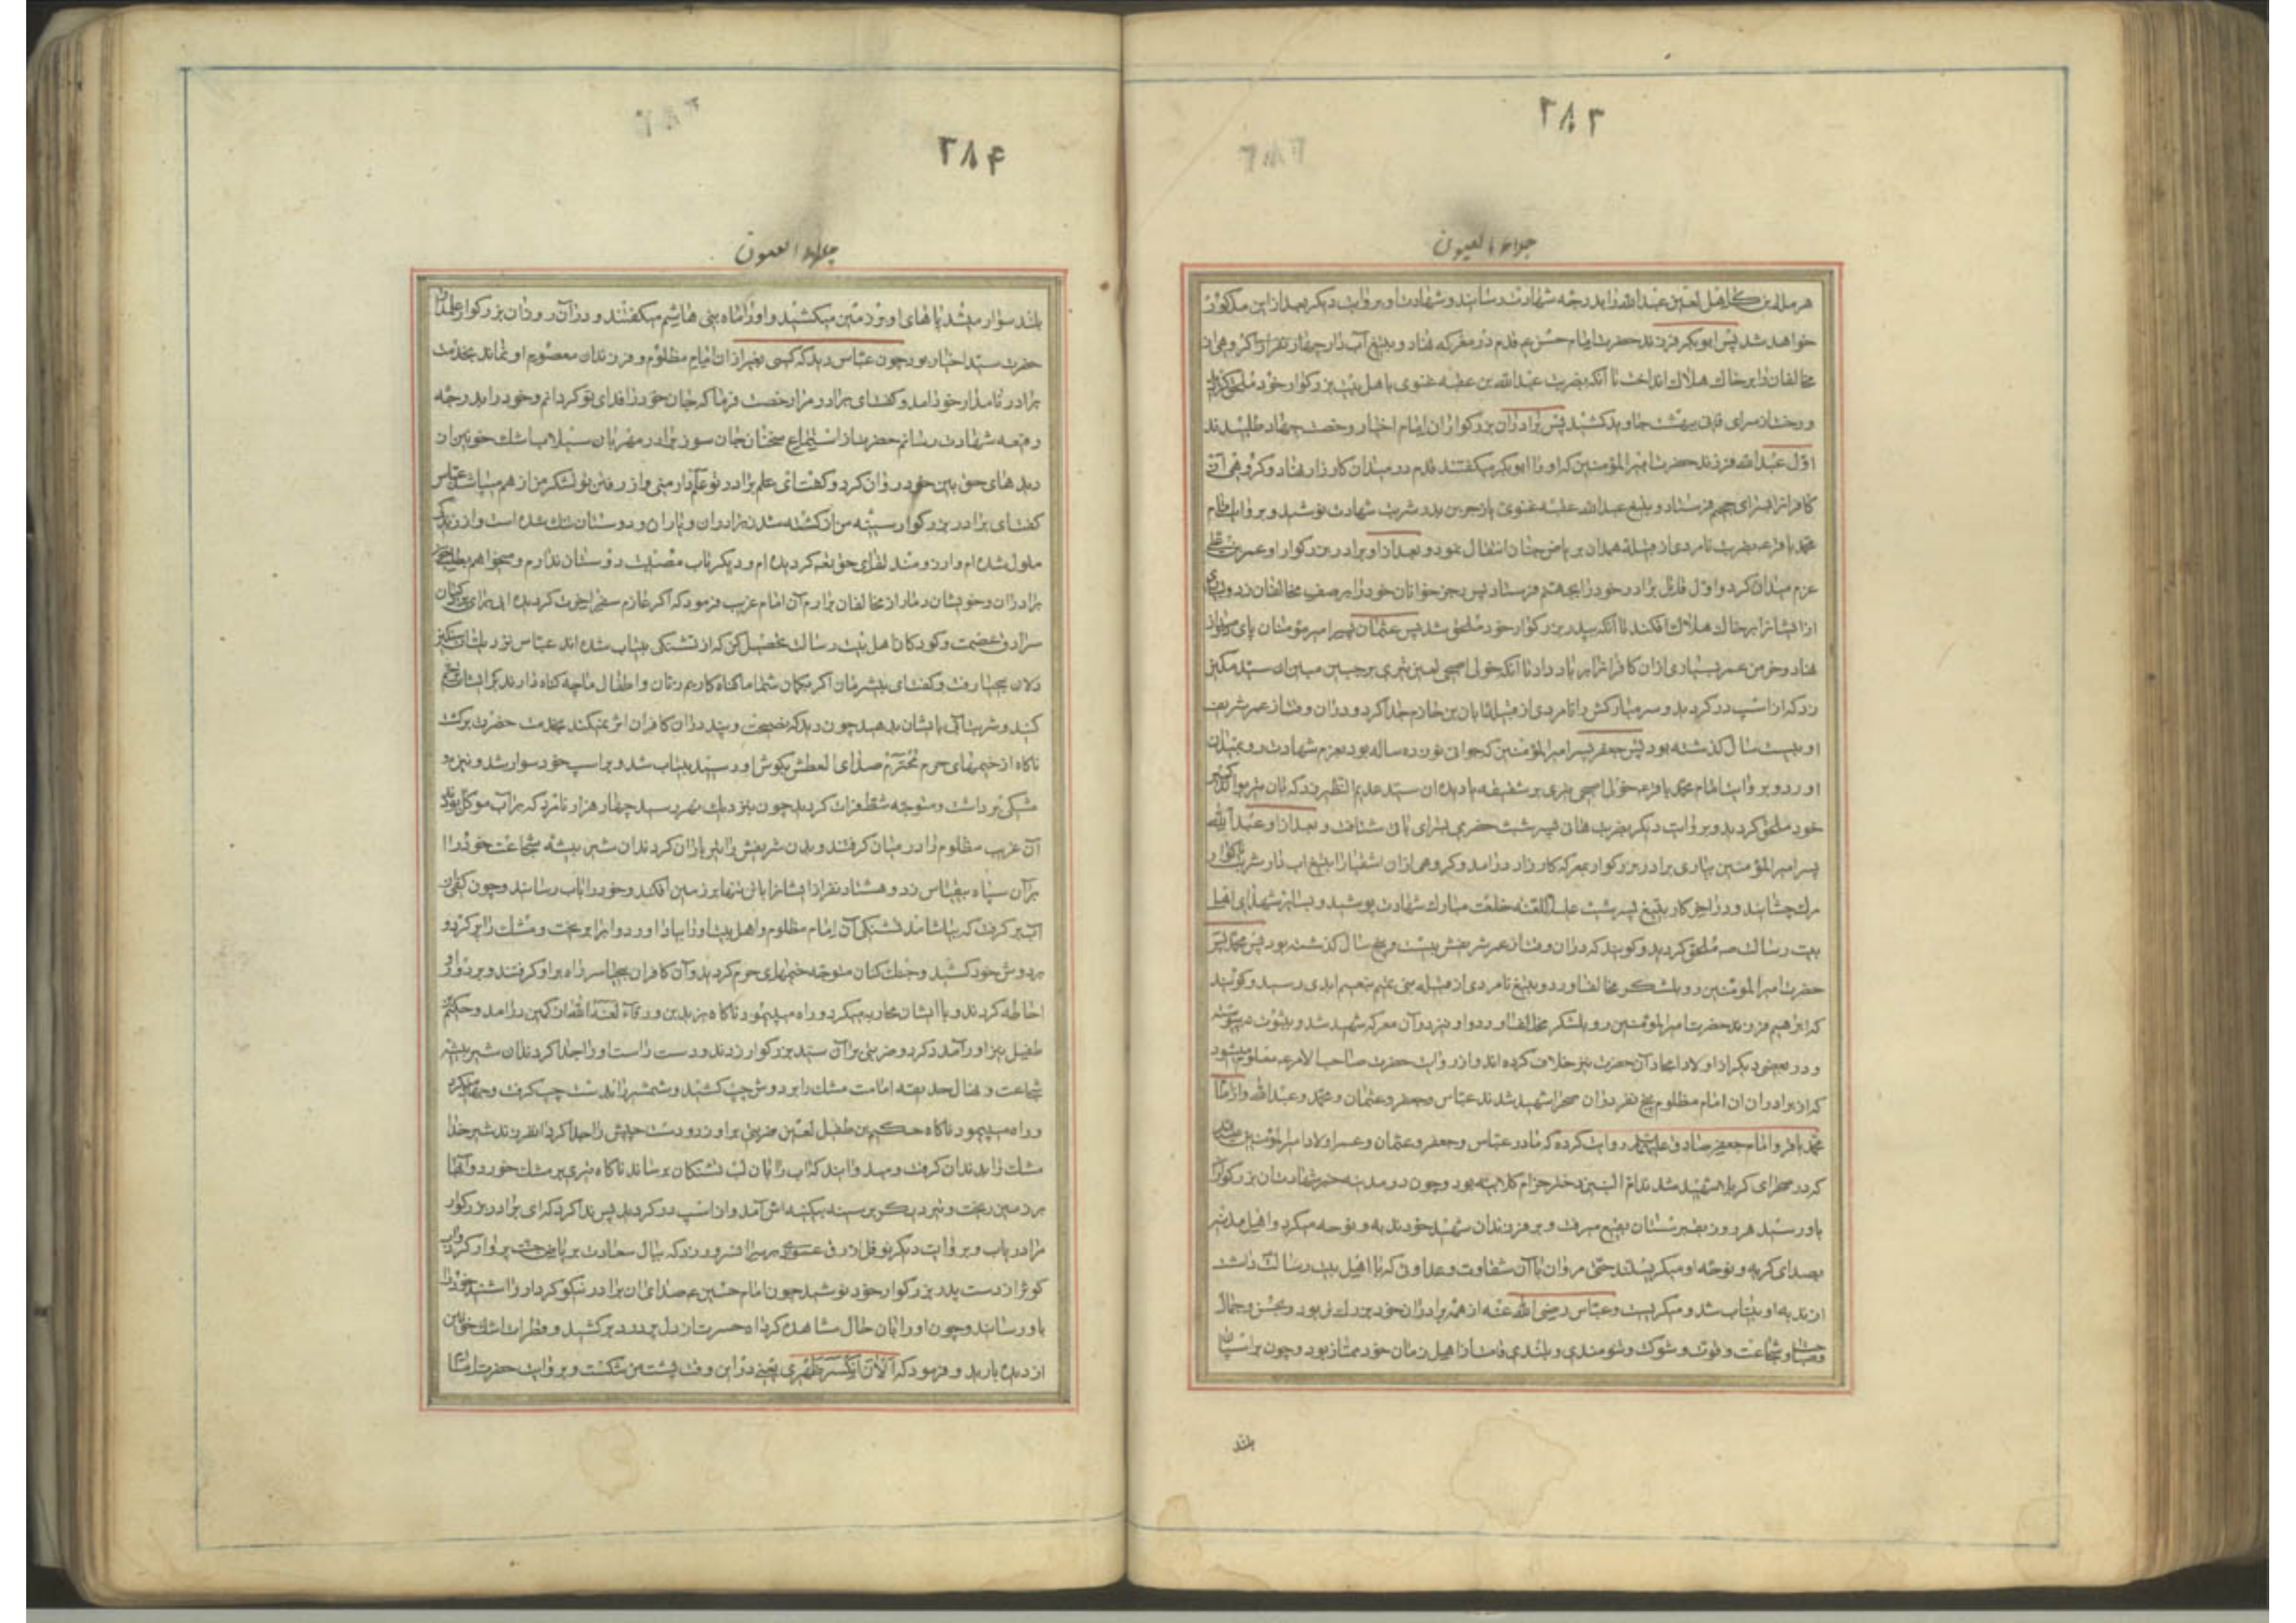 ۲۸۳
جلاء العیون
هرمله بن کاهل لعین عبدالله را بدرجه شهادت رسانید و شهادت او بروایت دیکر بعد ازاین مذکور
خواهد شد پس ابوبکر فرزند حضرت امام حسن ع قدم در معرکه نهاد و بتیغ آب دار چهار نفر را کروهی از
مخالفان را بر خاک هلاک انداخت تا آنکه بضربت عبدالله بن عقبه غنوی باهل بیت بزرکوار خود ملحق کردید
و رخت از سرای فانی ببهشت جاوید کشید پس برادران بزرکوار ان امام اخیار رخصت جهاد طلبیدند
اوّل عبدالله فرزند حضرت امیرالمؤمنین که او را ابوبکر میکفتند قدم در میدان کارزار نهاد و کروهی ازان
کافرانرا بسرای جحیم فرستاد و بتیغ عبدالله عقبه غنوی یا زجر بن بدر شربت شهادت نوشید و بروایت امام
محمد باقر ع بضربت نامردی از قبیله همدان بریاض جنان انتقال نمود و بعد ازاو برادر بزرکوار او عمر بن علی
عزم میدان کرد و اوّل قاتل برادر خود را بجهنم فرستاد پس رجز خوانان خود را بر صف مخالفان زد و بسیاری
از ایشانرا بر خاک هلاک افکند تا آنکه بپدر بزرکوار خود ملحق شد پس عثمان پسر امیر مؤمنان پای در میدان
نهاد و خرمن عمر بسیاری ازان کافرانرا بر باد داد تا آنکه خولی اصبحی لعین تیری بر جبین مبین ان سید مکین
زد که از اسب در کردید و سر مبارکش را نامردی از قبیله ابان بن حازم جدا کرد و دران وقت از عمر شریف
او بیست سال کذشته بود پس جعفر پسر امیرالمؤمنین که جوان نوزده ساله بود بعزم شهادت رو بمیدان
اورد و بروایت امام محمد باقر ع خولی اصبحی تیری بر شقیقه یا دیده ان سید عدیم النظیر زد که بان تیر بپدر کبیر
خود ملحق کردید و بروایت دیکر بضربت هانی پسر شبث حضرمی بسرای باقی شتافت و بعد ازاو عبدالله
پسر امیرالمؤمنین بیاری برادر بزرکوار بمعرکه کارزار درامد و کروهی ازان اشقیا را بتیغ اب دار شربت ناکوار
مرک چشانید و در اخر کار بتیغ پسر شبث علیه اللعنه خلعت مبارک شهادت پوشید و بسایر شهدای اهل
بیت رسالت ص ملحق کردید و کویند که دران وقت از عمر شریفش بیست و پنج سال کذشته بود پس محمد پسر
حضرت امیرالمؤمنین رو بلشکر مخالف اورد و بتیغ نامردی از قبیله بنی تمیم بنعیم ابدی رسید و کویند
که ابراهیم فرزند حضرت امیرالمؤمنین رو بلشکر مخالف اورد و او نیز در آن معرکه شهید شد و بثبوت نپیوسته
و در بعضی دیکر از اولاد امجاد آن حضرت نیز خلاف کرده اند و از روایت حضرت صاحب الامر ع معلوم میشود
که از برادران ان امام مظلوم پنج نفر دران صحرا شهید شدند عباس و جعفر و عثمان و محمد و عبدالله و از امام
محمد باقر و امام جعفر صادق علیهما السلام روایت کرده که مادر عباس و جعفر و عثمان و عمر اولاد امیرالمؤمنین
که در صحرای کربلا شهید شدند امّ البنین دختر حزام کلابیه بود و چون در مدینه خبر شهادت ان بزرکواران
باو رسید هر روز بقبرستان بقیع میرفت و بر فرزندان شهید خود ندبه و نوحه میکرد و اهل مدینه
بصدای کریه و نوحه او میکریستند حتی مروان با آن شقاوت و عداوتی که با اهل بیت رسالت داشت
از ندبه او بیتاب شد و میکریست و عباس رضی الله عنه از همه برادران خود بزرک تر بود و بحسن و جمال
و شجاعت و قوت و شوکت و تنومندی و بلندی قامت از اهل زمان خود ممتاز بود و چون بر اسبان
بلند
۲۸۴
جلاء العیون
بلند سوار میشد پاهای او بر زمین میکشید و او را ماه بنی هاشم میکفتند و در آن روز ان بزرکوار علمدار
حضرت سید اخیار بود چون عباس دید که کسی بغیر از ان امام مظلوم و فرزندان معصوم او نماند بخدمت
برادر نامدار خود امد و کفت ای برادر مرا رخصت فرما که جان خود را فدای تو کردانم و خود را بدرجه
رفیعه شهادت رسانم حضرت از استماع سخنان جان سوز برادر مهربان سیلاب اشک خونین از
دیدهای حق بین خود روان کرد و کفت ای علم برادر تو علمدار منی و از رفتن تو لشکر من از هم میپاشد عباس
کفت ای برادر بزرکوار سینه من از کشته شدن برادران و یاران و دوستان تنک شده است و از زندکی
ملول شده ام و ارزومند لقای حق تعالی کردیده ام و دیکر تاب مصیبت دوستان ندارم و میخواهم بطلب خون
برادران و خویشان دمار از مخالفان برارم آن امام غریب فرمود که اکر عازم سفر اخرت کردیده ای برای پردکیان
سرادق عصمت و کودکان اهل بیت رسالت تحصیل اب کن که از تشنکی بیتاب شده اند عباس نزدیک ان سنکین
دلان بیحیا رفت و کفت ای بیشرمان اکر بکمان شما ما کناه کاریم زنان و اطفال ما چه کناه دارند بر ایشان رحم
کنید و شربت آبی بایشان بدهید چون دید که نصیحت و پند در ان کافران اثر نمیکند بخدمت حضرت برکشت
ناکاه از خیمهای حرم محترم صدای العطش بکوش او رسید بیتاب شد و بر اسب خود سوار شد و نیزه و
مشکی برداشت و متوجه شط فرات کردید چون بنزدیک نهر رسید چهار هزار نامرد که بر آب موکل بودند
آن غریب مظلوم را در میان کرفتند و بدن شریفش را تیرباران کردند ان شیر بیشه شجاعت خود را
بر آن سپاه بیقیاس زد و هشتاد نفر از ایشانرا بانش تنها بر زمین افکند و خود را باب رسانید و چون کفی از
آب بر کرفت که بیاشامد تشنکی آن امام مظلوم و اهل بیت او را بیاد اورد و اب را بریخت و مشک را پر کرد و
بر دوش خود کشید و جنک کنان متوجه خیمهای حرم کردید و آن کافران بیحیا سر راه بر او کرفتند و بر دور او
احاطه کردند و با ایشان محاربه میکرد و راه میپیمود ناکاه یزید بن ورقاء لعنه الله از کمین درامد و حکیم بن
طفیل نیز او را مدد کرد و ضربتی بر آن سید بزرکوار زدند و دست راست او را جدا کردند ان شیر بیشه
شجاعت و نهال حدیقه امامت مشک را بر دوش چپ کشید و شمشیر را بدست چپ کرفت و جهاد میکرد
و راه میپیمود ناکاه حکیم بن طفیل لعین ضربتی بر او زد و دست چپش را جدا کرد ان فرزند شیر خدا
مشک را بدندان کرفت و میدوانید که اب را بان لب تشنکان برساند ناکاه تیری بر مشک خورد و آبها
بر زمین ریخت و تیر دیکر بر سینه بیکینه اش آمد و از اسب در کردید پس ندا کرد که ای برادر بزرکوار
مرا دریاب و بروایت دیکر نوفل ازرق عمودی بر سر ان سرور زد که ببال سعادت بریاض جنت پرواز کرد و آب
کوثر از دست پدر بزرکوار خود نوشید چون امام حسین ع صدای ان برادر نیکو کردار را شنید خود را
باو رسانید و چون او را بان حال مشاهده کرد اه حسرت از دل پر درد بر کشید و قطرات اشک خونین
از دیده بارید و فرمود که اَلآنَ اِنکَسَرَ ظَهری یعنی در این وقت پشت من شکست و بروایت حضرت امام